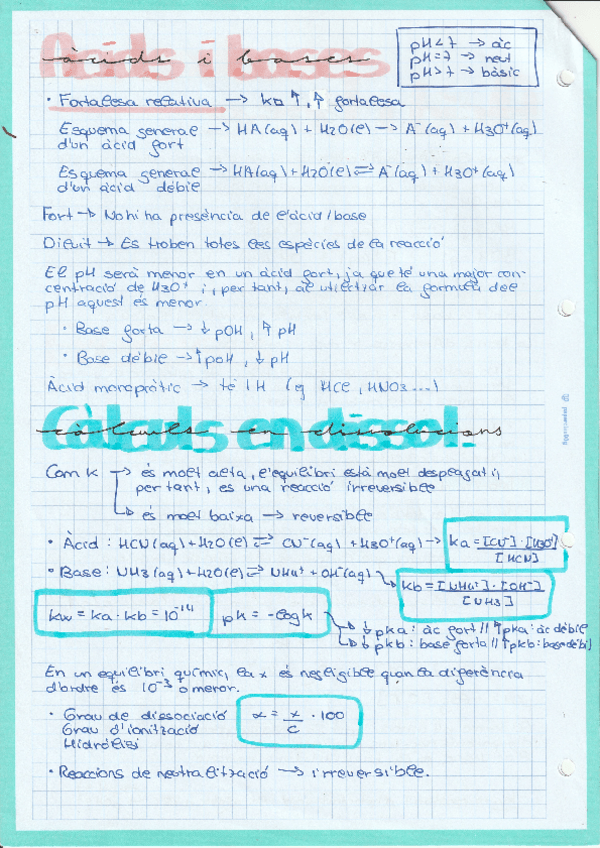 Àcids i bases
àcids i bases
pH<7 → àc
pH=7 → neut
pH>7 → bàsic
· Fortalesa relativa → ka ↑, ↑ fortalesa
Esquema general → HA(aq) + H2O(l) → A⁻(aq) + H3O⁺(aq)
d'un àcid fort
Esquema general → HA(aq) + H2O(l) ⇌ A⁻(aq) + H3O⁺(aq)
d'un àcid dèbil
Fort → No hi ha presència de l'àcid/base
Diluït → Es troben totes les espècies de la reacció
El pH serà menor en un àcid fort, ja que té una major con-
centració de H3O⁺ i, per tant, al utilitzar la formula del
pH aquest és menor.
· Base forta → ↓ pOH, ↑ pH
· Base dèbil → ↑ pOH, ↓ pH
Àcid monopròtic → té 1H (eg HCl, HNO3...)
Càlculs en dissol.
càlculs en dissolucions
Com K → és molt alta, l'equilibri està molt desplaçat i,
per tant, es una reacció irreversible
→ és molt baixa → reversible
· Àcid: HCN(aq) + H2O(l) ⇌ CN⁻(aq) + H3O⁺(aq) → ka = [CN⁻]·[H3O⁺] / [HCN]
· Base: NH3(aq) + H2O(l) ⇌ NH4⁺ + OH⁻(aq) → kb = [NH4⁺]·[OH⁻] / [NH3]
kw = ka · kb = 10⁻¹⁴
pk = -log k
→ ↓ pka: àc fort // ↑ pka: àc dèbil
→ ↓ pkb: base forta // ↑ pkb: base dèbil
En un equilibri químic, la x és negligible quan la diferència
d'ordre és 10⁻³ o menor.
· Grau de dissociació
Grau d'ionització
Hidròlisi
α = x/c · 100
· Reaccions de neutralització → irreversible.